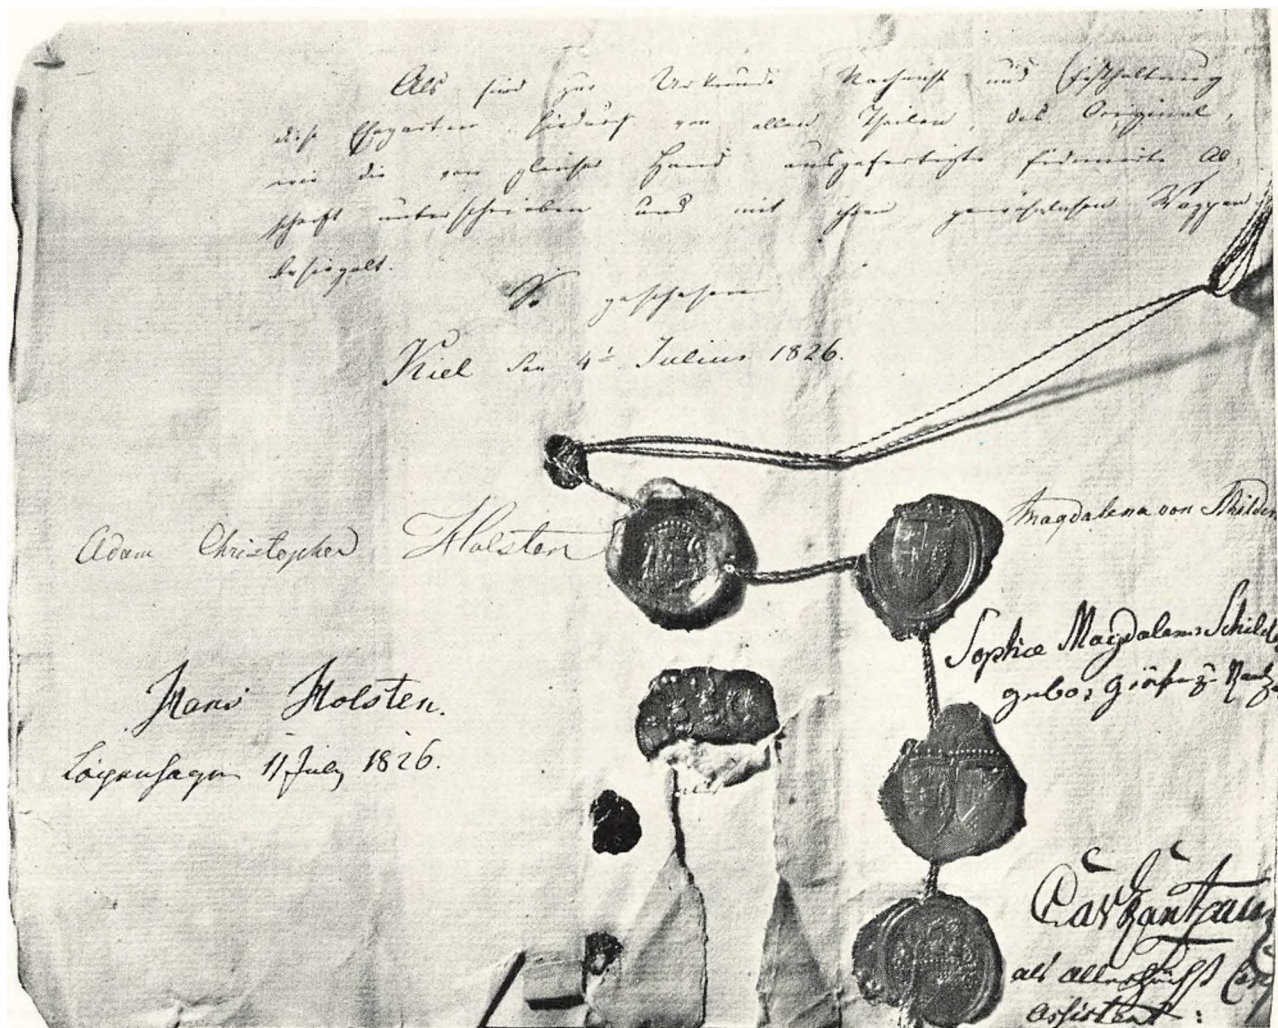 Als sind zur Urkunde Nachricht und Festhaltung
diese Ehepacten hiedurch von allen Theilen, das Original,
wie die von gleicher Hand ausgefertigte fidimirte Ab-
schrift unterschrieben und mit ihren gewöhnlichen Wappen
besiegelt.
So geschehen
Kiel den 4t Julius 1826.
Adam Christopher Holsten
Magdalena von Schilden
Sophie Magdalena Schild
gebor Gräfin z. Rantz
Hans Holsten.
11 July 1826.
als allerhöchst
Assistent: